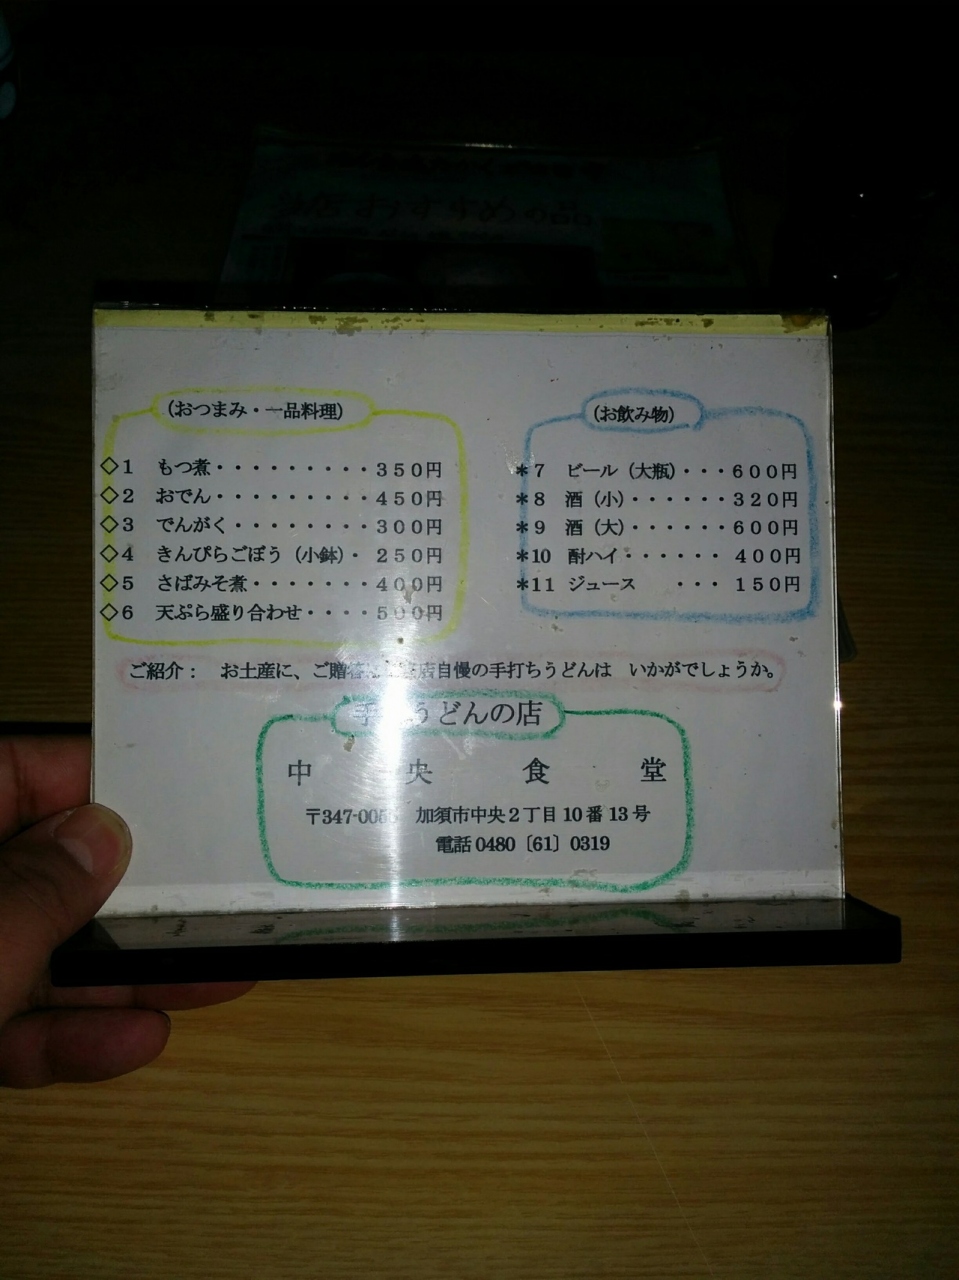 おすすめの品
(おつまみ・一品料理)
◇1 もつ煮・・・・・・・・・・350円
◇2 おでん・・・・・・・・・・450円
◇3 でんがく・・・・・・・・・300円
◇4 きんぴらごぼう (小鉢)・ 250円
◇5 さばみそ煮・・・・・・・400円
◇6 天ぷら盛り合わせ・・・・500円
(お飲み物)
*7 ビール (大瓶)・・・600円
*8 酒 (小)・・・・・・320円
*9 酒 (大)・・・・・・600円
*10 酎ハイ・・・・・・ 400円
*11 ジュース ・・・ 150円
ご紹介： お土産に、ご贈答 店自慢の手打ちうどんは いかがでしょうか。
手 うどんの店
中 央 食 堂
〒347-005 加須市中央2丁目10番13号
電話 0480〔61〕0319